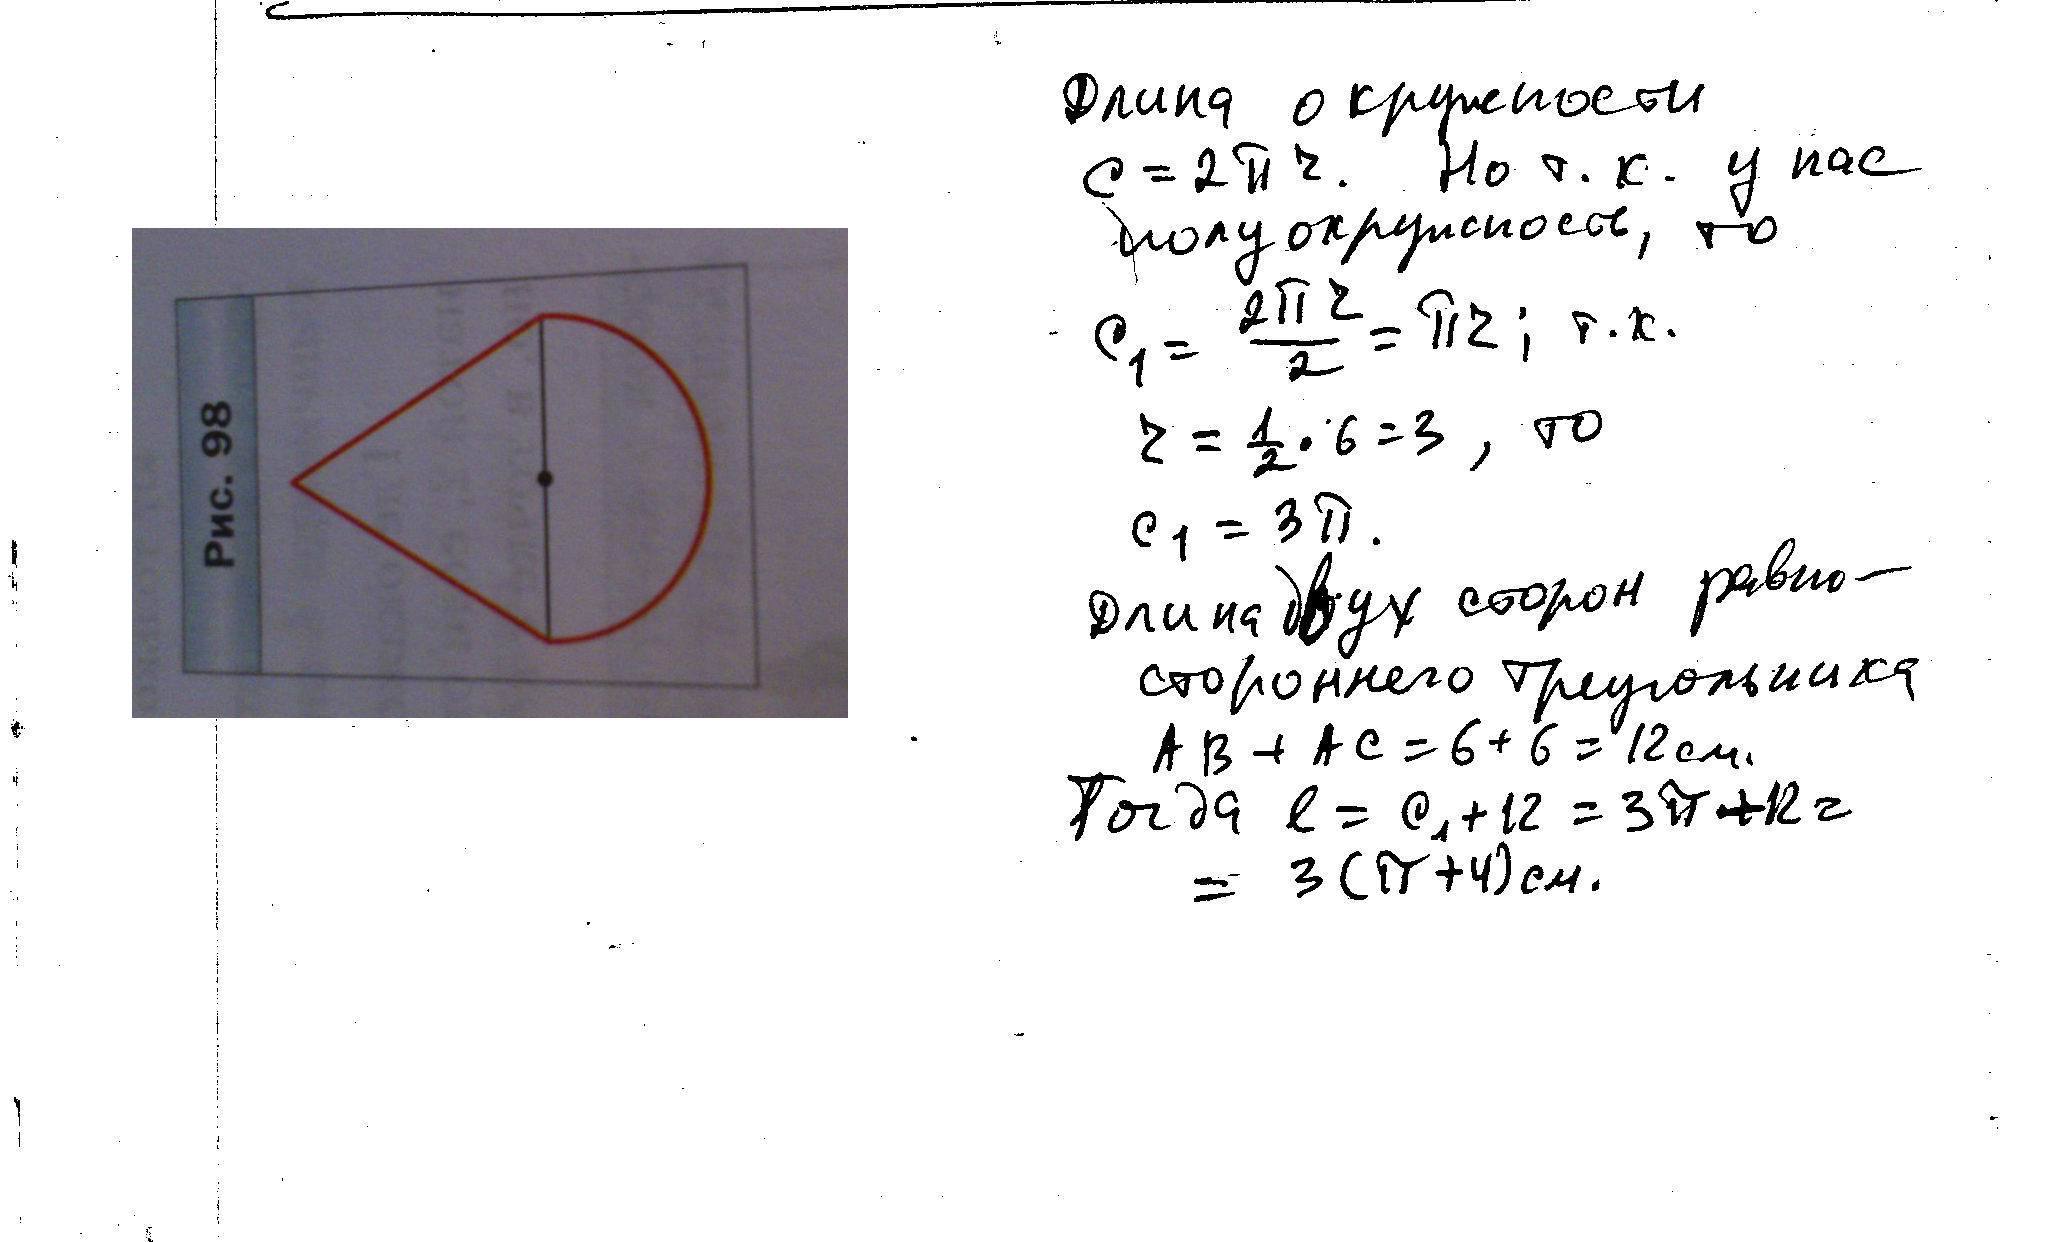 Рис. 98
Длина окружности
C = 2πr. Но т. к. у нас
полуокружность, то
C₁ = 2πr/2 = πr; т.к.
r = 1/2 · 6 = 3, то
C₁ = 3π.
Длина двух сторон равно-
стороннего треугольника
AB + AC = 6 + 6 = 12 см.
Тогда l = C₁ + 12 = 3π + 12 =
= 3(π + 4) см.